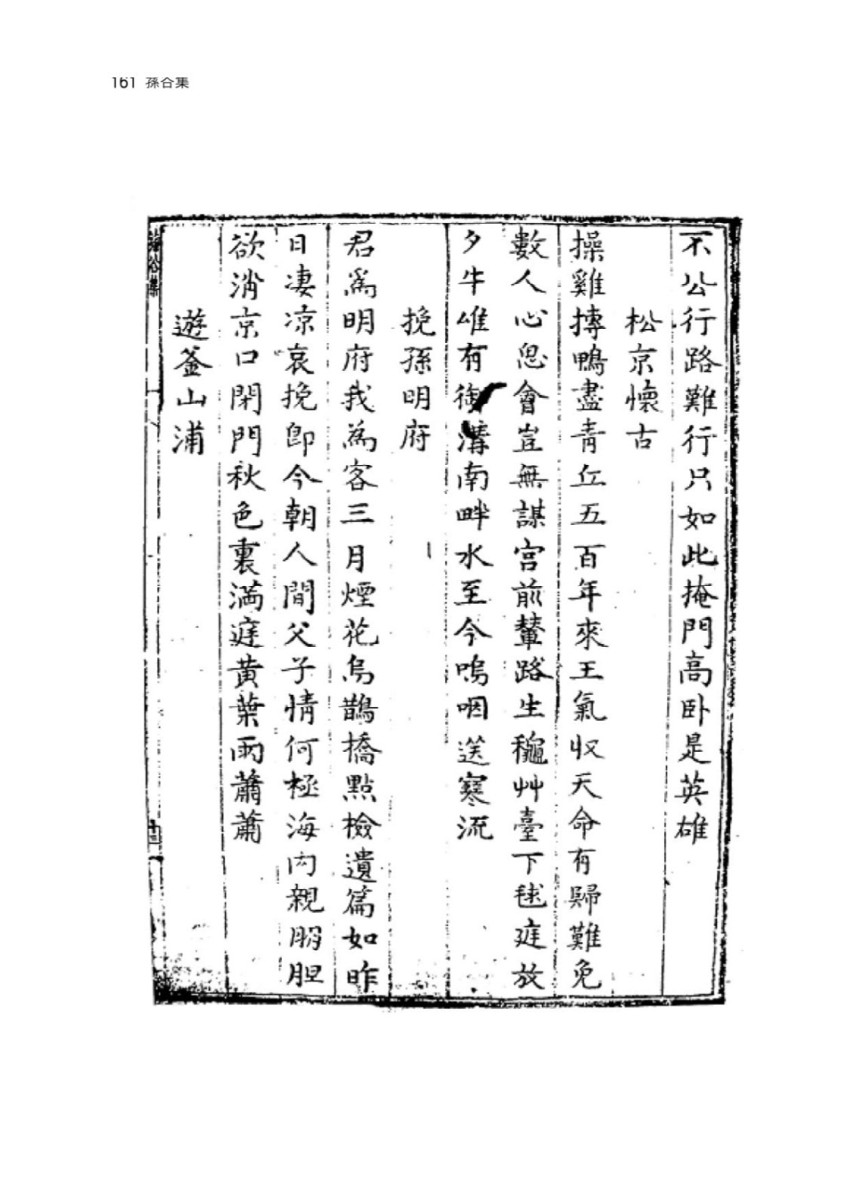 161 孫合集
不公行路難行只如此掩門高卧是英雄
松京懷古
操雞摶鴨盡青丘五百年來王氣収天命有歸難免
數人心思會豈無謀宮前輦路生穐艸臺下毬庭放
夕牛唯有御溝南畔水至今嗚咽送寒流
挽孫明府
君爲明府我爲客三月煙花烏鵲橋點檢遺篇如昨
日凄凉哀挽即今朝人間父子情何極海内親朋胆
欲消京口閉門秋色裏滿庭黄葉雨蕭蕭
遊釜山浦
十三